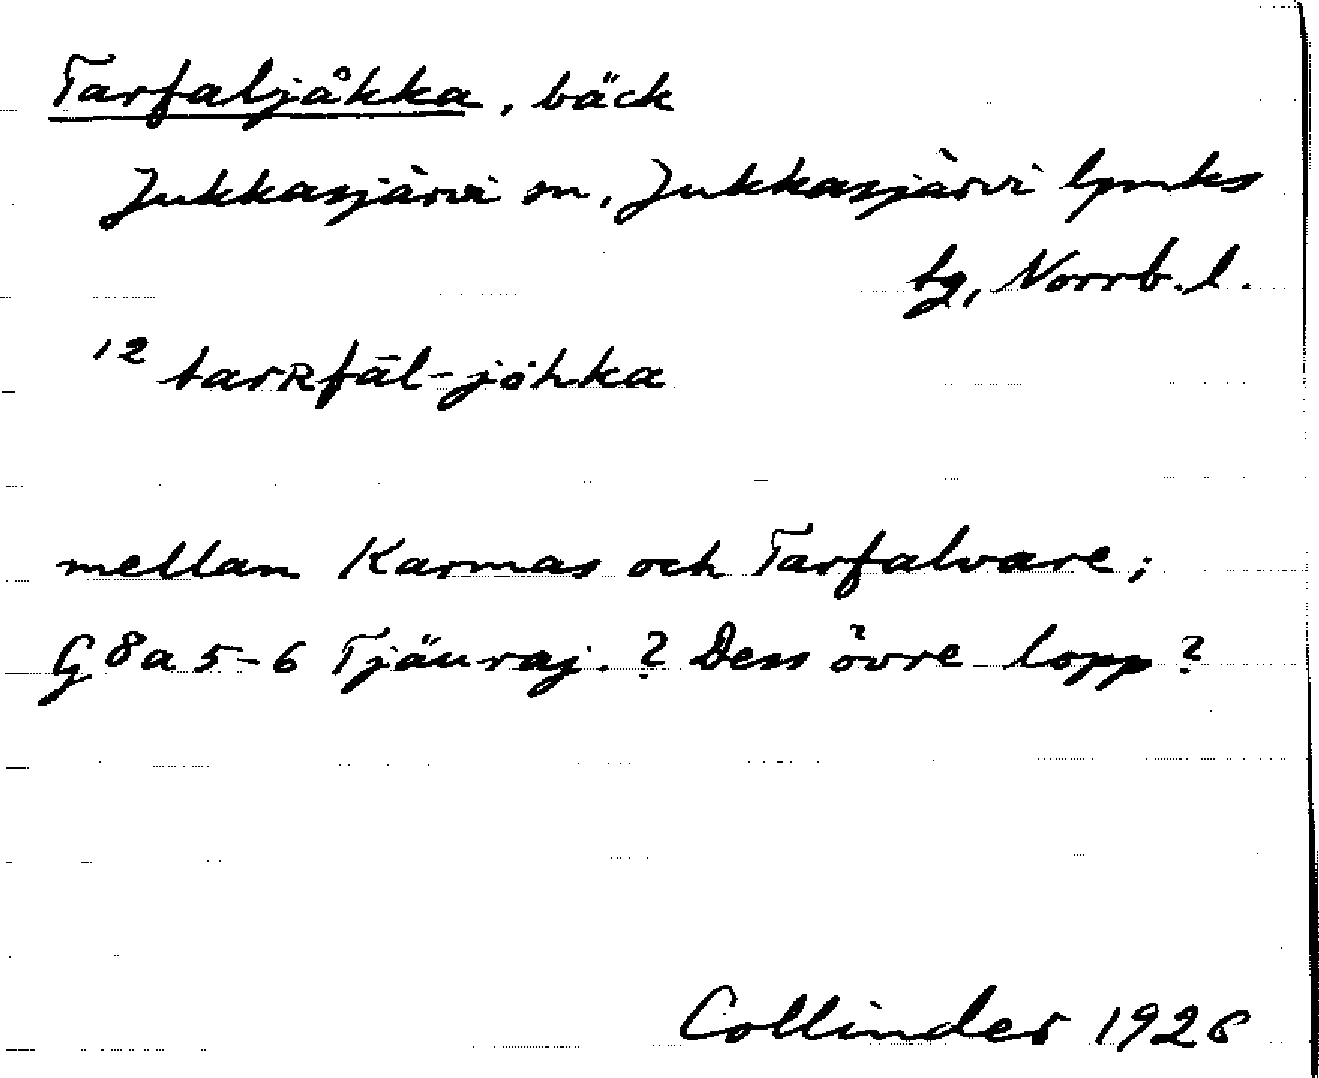 Tarfaljåkka, bäck
Jukkasjärvi sn, Jukkasjärvi lpmks
tg, Norrb. l.
12 tarʀfāl-jòhka
mellan Karmas och Tarfalvare;
G 8a 5-6 Tjäuraj. ? Dess övre lopp?
Collinder 1926